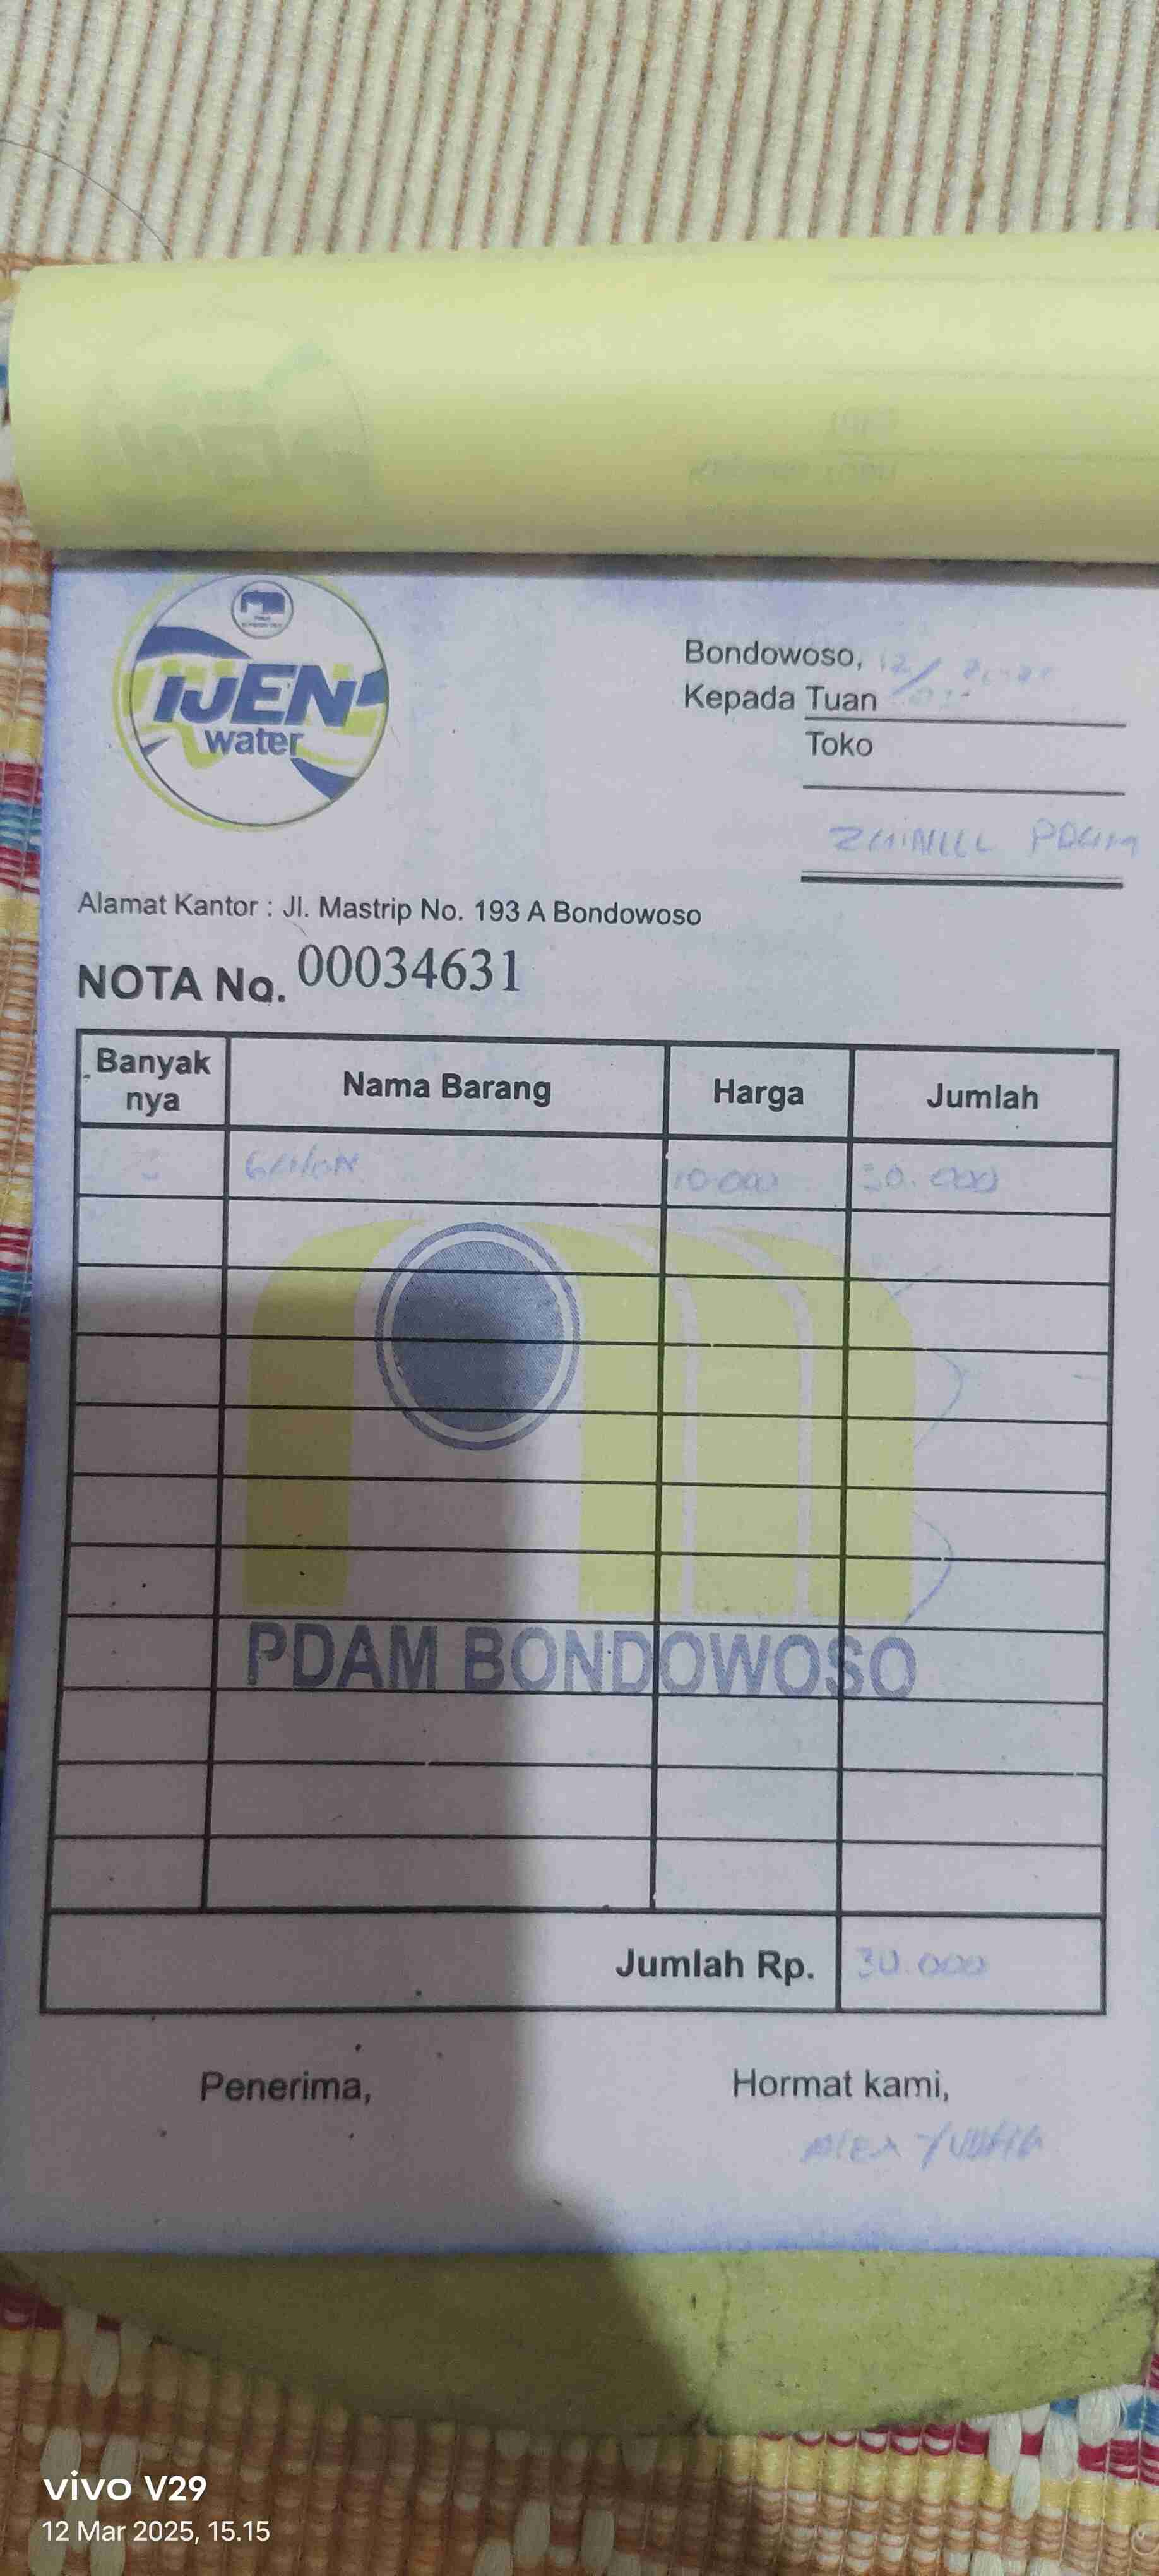 IJEN
water
Bondowoso, 12/
Kepada Tuan
Toko
PDAM
Alamat Kantor : Jl. Mastrip No. 193 A Bondowoso
NOTA No. 00034631
Banyak nya Nama Barang Harga Jumlah
GALON 10.000 30.000
PDAM BONDOWOSO
Jumlah Rp. 30.000
Penerima, Hormat kami,
ALEX
vivo V29
12 Mar 2025, 15.15